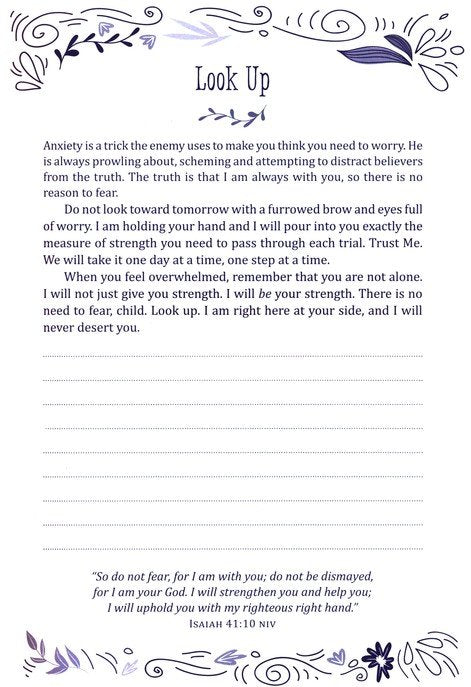 Look Up
Anxiety is a trick the enemy uses to make you think you need to worry. He
is always prowling about, scheming and attempting to distract believers
from the truth. The truth is that I am always with you, so there is no
reason to fear.
Do not look toward tomorrow with a furrowed brow and eyes full
of worry. I am holding your hand and I will pour into you exactly the
measure of strength you need to pass through each trial. Trust Me.
We will take it one day at a time, one step at a time.
When you feel overwhelmed, remember that you are not alone.
I will not just give you strength. I will be your strength. There is no
need to fear, child. Look up. I am right here at your side, and I will
never desert you.
“So do not fear, for I am with you; do not be dismayed,
for I am your God. I will strengthen you and help you;
I will uphold you with my righteous right hand.”
Isaiah 41:10 NIV